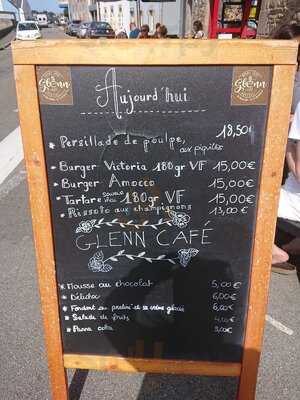 Glenn
Glenn
Aujourd'hui
* Persillade de poulpe, 18,50€
aux piquillos
* Burger Victoria 180gr VF 15,00€
* Burger Amocco 15,00€
* Tartare 180gr VF 15,00€
* Rissoto aux champignons 13,00€
GLENN CAFÉ
* Mousse au chocolat 5,00€
* Délichoc 6,00€
* Fondant au praliné et sa crème glacée 6,00€
* Salade de fruits
* Panna cotta